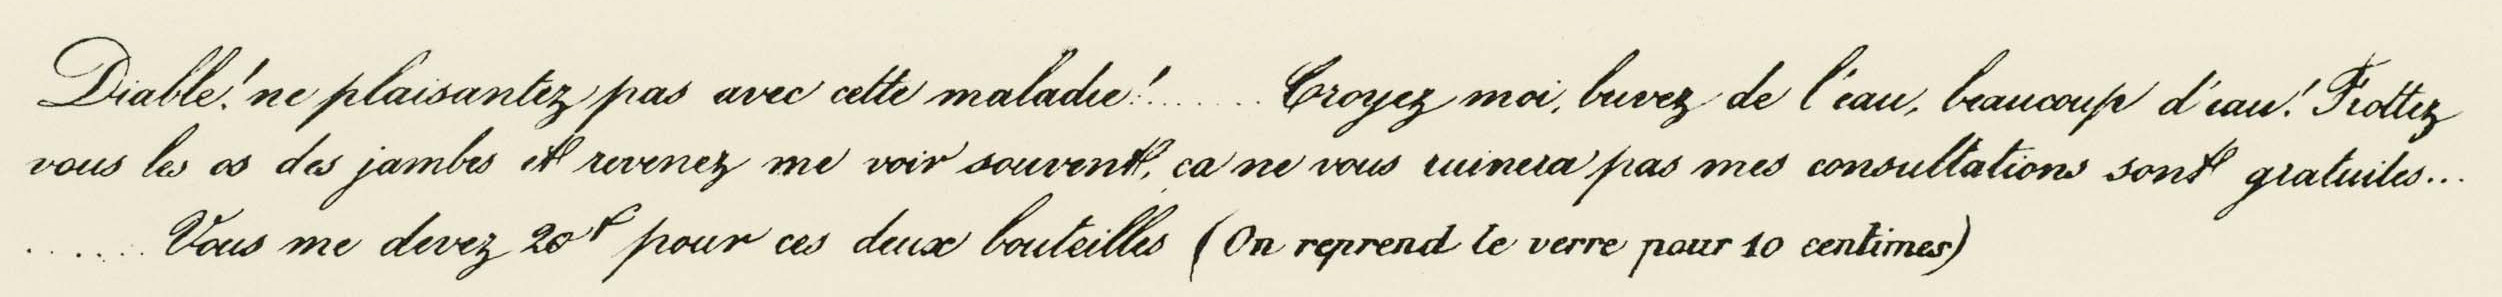 Diable! ne plaisantez pas avec cette maladie!....... Croyez moi, buvez de l'eau, beaucoup d'eau! Frottez
vous les os des jambes et revenez me voir souvent, ça ne vous ruinera pas mes consultations sont gratuites...
...... Vous me devez 20f pour ces deux bouteilles (On reprend le verre pour 10 centimes)